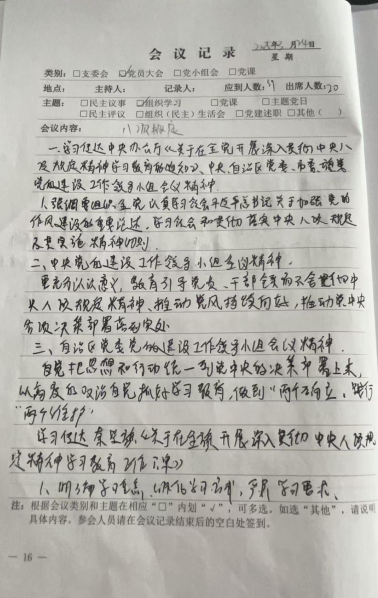 会议记录
星期
类别：□支委会 ☑党员大会 □党小组会 □党课
地点： 主持人： 记录人： 应到人数： 出席人数：20
主题：□民主议事 ☑组织学习 □党课 □主题党日
□民主评议 □组织（民主）生活会 □党建述职 □其他（ ）
会议内容： 八项规定
一、学习传达中央办公厅《关于在全党开展深入贯彻中央八
项规定精神学习教育的通知》、中央、自治区党委、市委、
党的建设工作领导小组会议精神
1、强调要组织全党认真学习习近平总书记关于加强党的
作风建设的重要论述，学习领会和贯彻落实中央八项规定
及其实施细则精神
二、中央党的建设工作领导小组会议精神。
要充分认识意义，教育引导党员、干部锲而不舍贯彻中
央八项规定精神、推动党风持续向好，推动党中央
各项决策部署落到实处
三、自治区党委党的建设工作领导小组会议精神。
自觉把思想和行动统一到党中央的决策部署上来，
以高度的政治自觉抓好学习教育，做到“两个确立，践行
“两个维护”
学习传达《关于在全 开展深入贯彻中央八项规
定精神学习教育 》
1、明确学习重点，学习 ，严 学习要求、
注：根据会议类别和主题在相应“□”内划“√”，可多选，如选“其他”，请说明
具体内容。参会人员请在会议记录结束后的空白处签到。
— 16 —